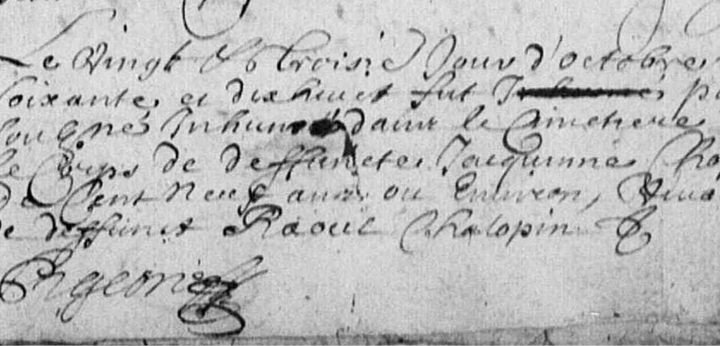 Le Vingt & troisie Jour d'octobre
soixante et dix huict fut Inhumé p
sougné Inhumé dans le Cimetiere
le Corps de deffuncte Jacquinne Cha
de Cent Neuf ans ou Environ, Viva
de deffunct Raoul Chalopin
Pigeon